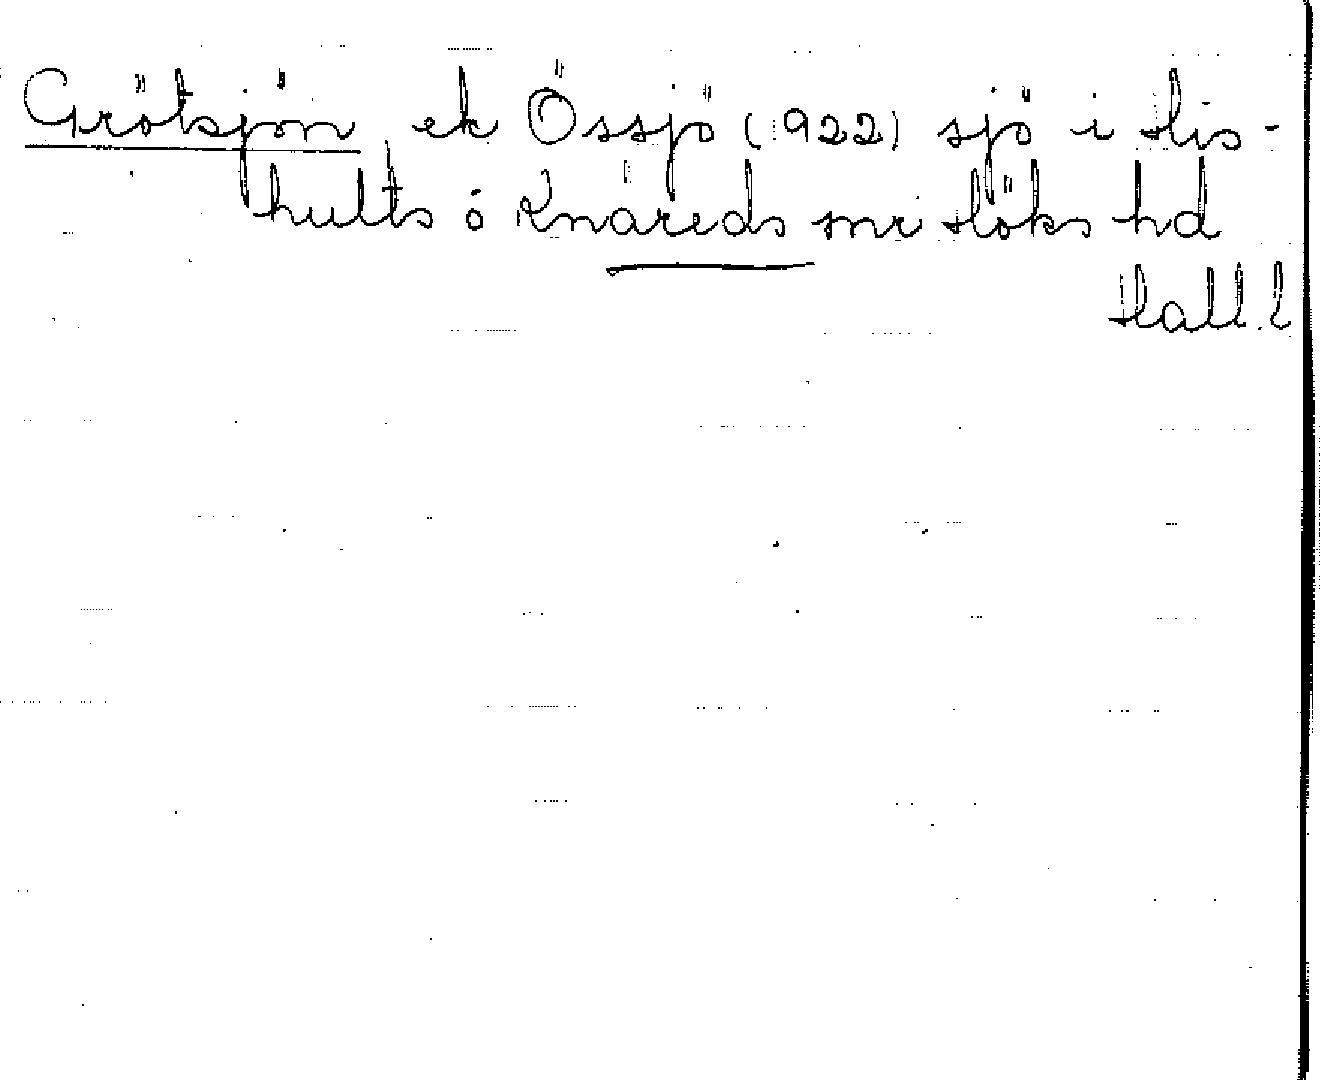 Grötsjön ek Össjö (1922) sjö i His-
hults o Knäreds snr Höks hd
Hall.l